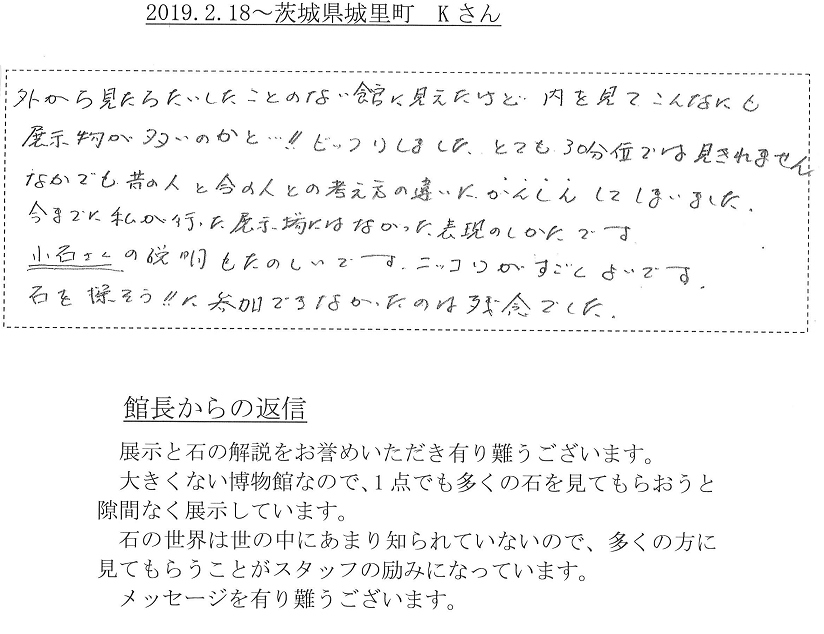 2019.2.18～茨城県城里町　Kさん
外から見たらたいしたことのない館に見えたけど 内を見てこんなにも
展示物が多いのかと…!!ビックリしました。とても30分位では見きれません
なかでも 昔の人と今の人との考え方の違いにかんしんしてしまいました．
今までに私が行った展示場にはなかった表現のしかたです
小石さんの説明もたのしいです．ニッコリがすごくよいです．
石を探そう!!に参加できなかったのは残念でした．
館長からの返信
展示と石の解説をお誉めいただき有り難うございます。
大きくない博物館なので、１点でも多くの石を見てもらおうと
隙間なく展示しています。
石の世界は世の中にあまり知られていないので、多くの方に
見てもらうことがスタッフの励みになっています。
メッセージを有り難うございます。